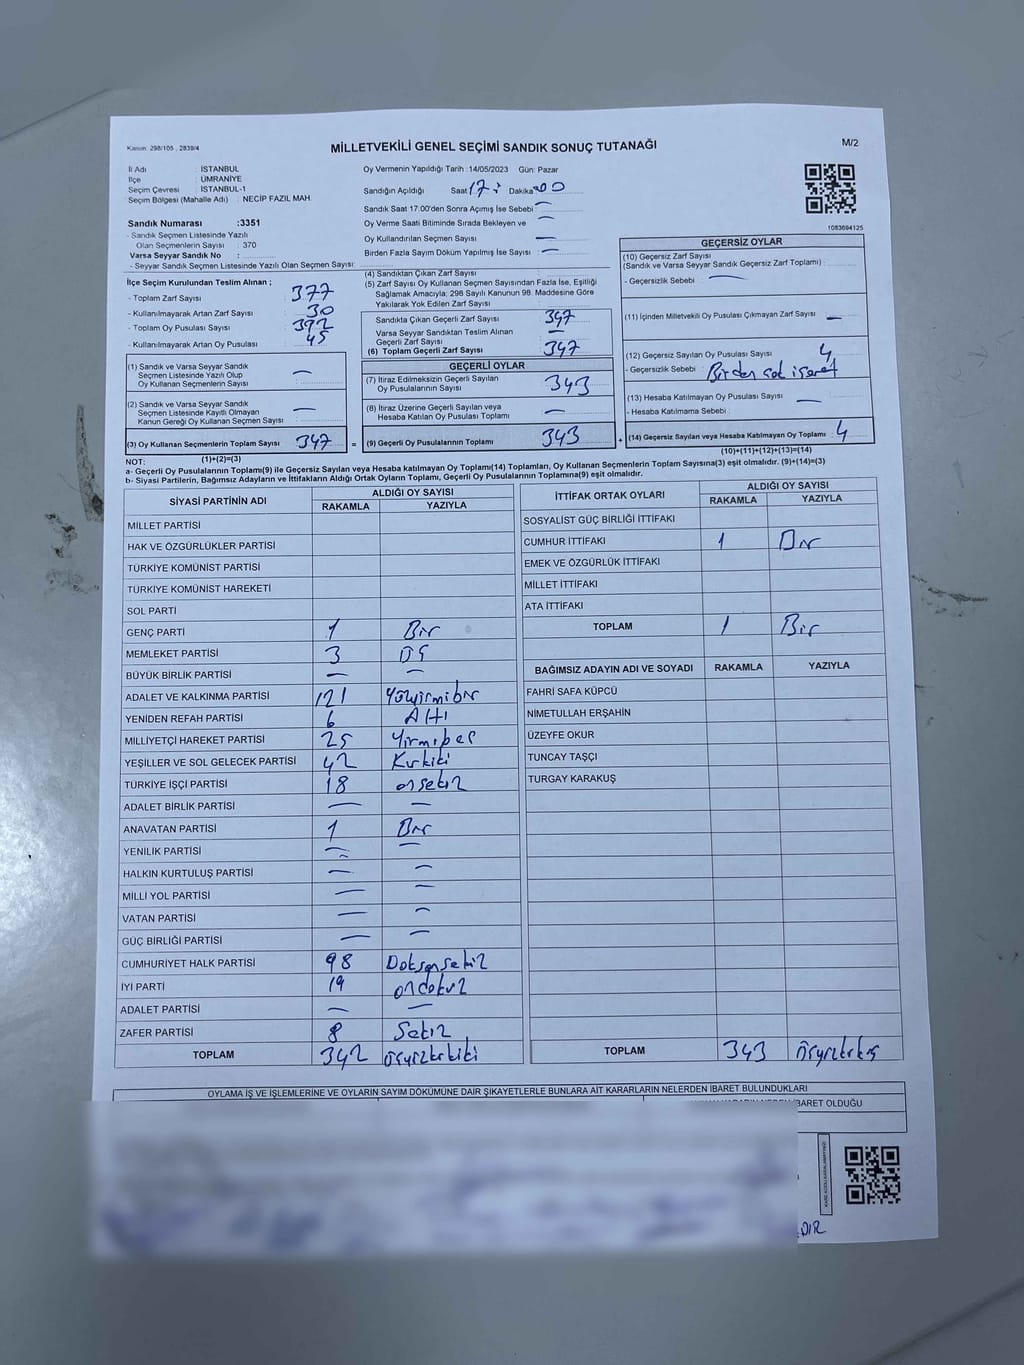 Kanun: 298/105 , 2839/4
MİLLETVEKİLİ GENEL SEÇİMİ SANDIK SONUÇ TUTANAĞI
M/2
İl Adı : İSTANBUL
İlçe : ÜMRANİYE
Seçim Çevresi : İSTANBUL-1
Seçim Bölgesi (Mahalle Adı) : NECİP FAZIL MAH.
Sandık Numarası :3351
- Sandık Seçmen Listesinde Yazılı
Olan Seçmenlerin Sayısı : 370
Varsa Seyyar Sandık No :
- Seyyar Sandık Seçmen Listesinde Yazılı Olan Seçmen Sayısı:
Oy Vermenin Yapıldığı Tarih :14/05/2023 Gün: Pazar
Sandığın Açıldığı Saat 17: Dakika 00
Sandık Saat 17:00'den Sonra Açımış İse Sebebi —
Oy Verme Saati Bitiminde Sırada Bekleyen ve
Oy Kullandırılan Seçmen Sayısı —
Birden Fazla Sayım Döküm Yapılmış İse Sayısı : —
1083694125
İlçe Seçim Kurulundan Teslim Alınan ;
- Toplam Zarf Sayısı 377
- Kullanılmayarak Artan Zarf Sayısı 30
- Toplam Oy Pusulası Sayısı 392
- Kullanılmayarak Artan Oy Pusulası 45
(1) Sandık ve Varsa Seyyar Sandık
Seçmen Listesinde Yazılı Olup
Oy Kullanan Seçmenlerin Sayısı : —
(2) Sandık ve Varsa Seyyar Sandık
Seçmen Listesinde Kayıtlı Olmayan
Kanun Gereği Oy Kullanan Seçmen Sayısı : —
(3) Oy Kullanan Seçmenlerin Toplam Sayısı 347
(1)+(2)=(3)
(4) Sandıktan Çıkan Zarf Sayısı :
(5) Zarf Sayısı Oy Kullanan Seçmen Sayısından Fazla İse, Eşitliği
Sağlamak Amacıyla; 298 Sayılı Kanunun 98. Maddesine Göre
Yakılarak Yok Edilen Zarf Sayısı :
Sandıkta Çıkan Geçerli Zarf Sayısı 347
Varsa Seyyar Sandıktan Teslim Alınan
Geçerli Zarf Sayısı : —
(6) Toplam Geçerli Zarf Sayısı 347
GEÇERLİ OYLAR
(7) İtiraz Edilmeksizin Geçerli Sayılan
Oy Pusulalarının Sayısı 343
(8) İtiraz Üzerine Geçerli Sayılan veya
Hesaba Katılan Oy Pusulası Toplamı —
= (9) Geçerli Oy Pusulalarının Toplamı 343
GEÇERSİZ OYLAR
(10) Geçersiz Zarf Sayısı
(Sandık ve Varsa Seyyar Sandık Geçersiz Zarf Toplamı) :
- Geçersizlik Sebebi : —
(11) İçinden Milletvekili Oy Pusulası Çıkmayan Zarf Sayısı : —
(12) Geçersiz Sayılan Oy Pusulası Sayısı 4
- Geçersizlik Sebebi : Birden çok işaret
(13) Hesaba Katılmayan Oy Pusulası Sayısı —
- Hesaba Katılmama Sebebi :
+ (14) Geçersiz Sayılan veya Hesaba Katılmayan Oy Toplamı 4
(10)+(11)+(12)+(13)=(14)
NOT:
a- Geçerli Oy Pusulalarının Toplamı(9) ile Geçersiz Sayılan veya Hesaba katılmayan Oy Toplamı(14) Toplamları, Oy Kullanan Seçmenlerin Toplam Sayısına(3) eşit olmalıdır. (9)+(14)=(3)
b- Siyasi Partilerin, Bağımsız Adayların ve İttifakların Aldığı Oyların Toplamı, Geçerli Oy Pusulalarının Toplamına(9) eşit olmalıdır.
SİYASİ PARTİNİN ADI ALDIĞI OY SAYISI
RAKAMLA YAZIYLA
MİLLET PARTİSİ
HAK VE ÖZGÜRLÜKLER PARTİSİ
TÜRKİYE KOMÜNİST PARTİSİ
TÜRKİYE KOMÜNİST HAREKETİ
SOL PARTİ
GENÇ PARTİ 1 Bir
MEMLEKET PARTİSİ 3 Üç
BÜYÜK BİRLİK PARTİSİ — —
ADALET VE KALKINMA PARTİSİ 121 Yüzyirmibir
YENİDEN REFAH PARTİSİ 6 Altı
MİLLİYETÇİ HAREKET PARTİSİ 25 Yirmibeş
YEŞİLLER VE SOL GELECEK PARTİSİ 42 Kırkiki
TÜRKİYE İŞÇİ PARTİSİ 18 onsekiz
ADALET BİRLİK PARTİSİ — —
ANAVATAN PARTİSİ 1 Bir
YENİLİK PARTİSİ — —
HALKIN KURTULUŞ PARTİSİ — —
MİLLİ YOL PARTİSİ — —
VATAN PARTİSİ — —
GÜÇ BİRLİĞİ PARTİSİ — —
CUMHURİYET HALK PARTİSİ 98 Doksansekiz
İYİ PARTİ 19 ondokuz
ADALET PARTİSİ — —
ZAFER PARTİSİ 8 Sekiz
TOPLAM 342 üçyüzkırkiki
İTTİFAK ORTAK OYLARI ALDIĞI OY SAYISI
RAKAMLA YAZIYLA
SOSYALİST GÜÇ BİRLİĞİ İTTİFAKI
CUMHUR İTTİFAKI 1 Bir
EMEK VE ÖZGÜRLÜK İTTİFAKI
MİLLET İTTİFAKI
ATA İTTİFAKI
TOPLAM 1 Bir
BAĞIMSIZ ADAYIN ADI VE SOYADI RAKAMLA YAZIYLA
FAHRİ SAFA KÜPCÜ
NİMETULLAH ERŞAHİN
ÜZEYFE OKUR
TUNCAY TAŞÇI
TURGAY KARAKUŞ
TOPLAM 343 üçyüzkırküç
OYLAMA İŞ VE İŞLEMLERİNE VE OYLARIN SAYIM DÖKÜMÜNE DAİR ŞİKAYETLERLE BUNLARA AİT KARARLARIN NELERDEN İBARET BULUNDUKLARI
İBARET OLDUĞU